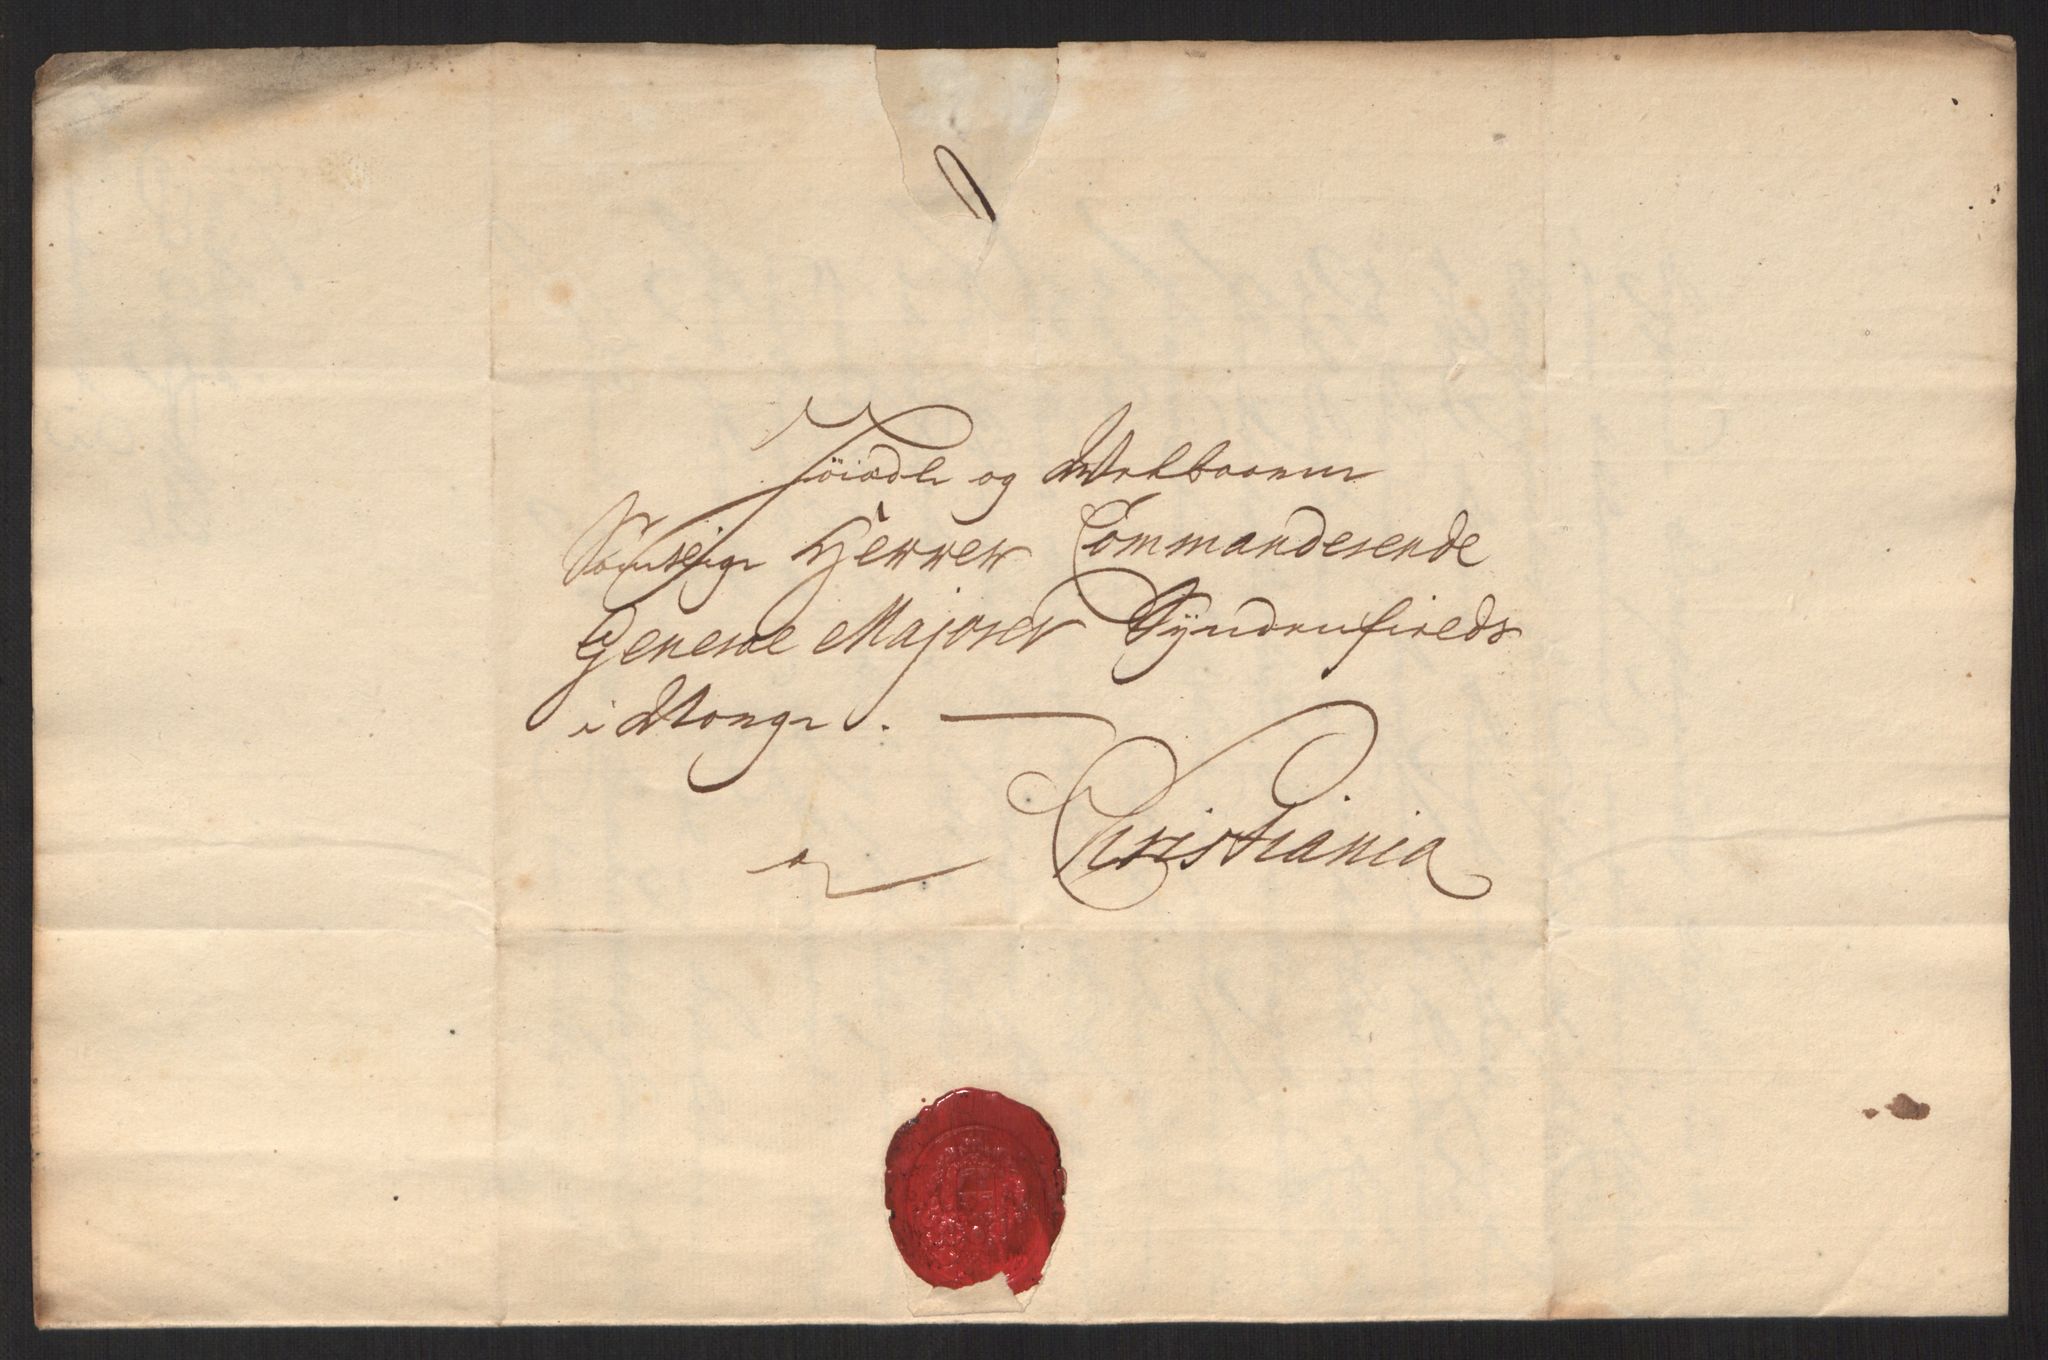 Höiædle og Welbaarne
Samtlige Herrer Commanderende
Generale Majorer Syndenfields
i Norge.
a Christiania